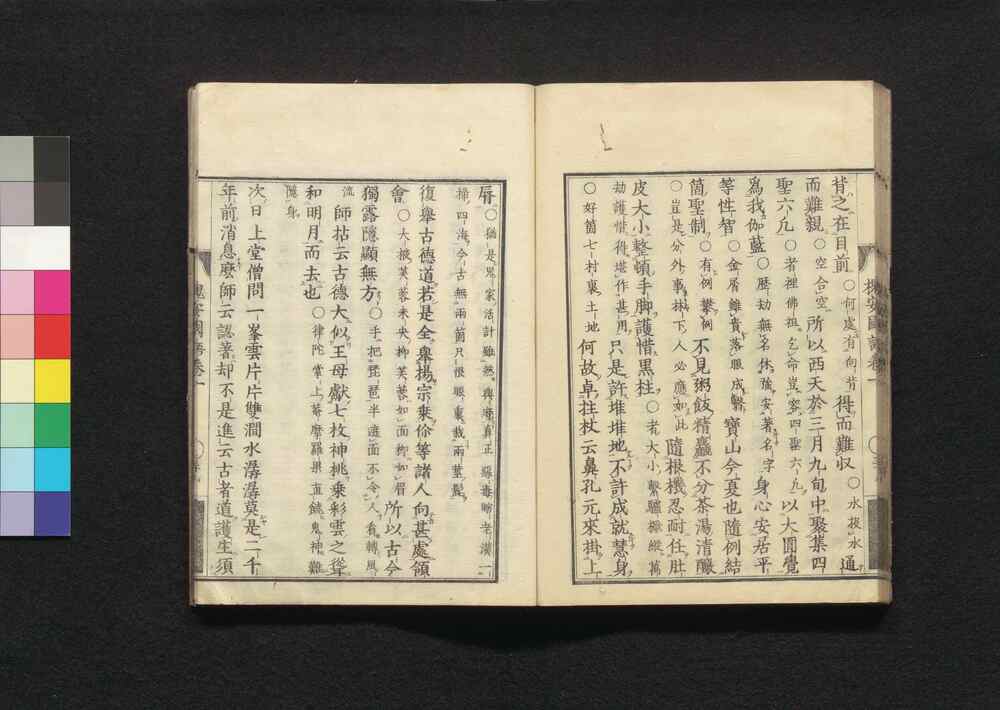 背之在目前○何處有向背得而難収○水投水通
而難親○空合空所以西天於三月九旬中聚集四
聖六凡○者裡佛祖乞命豈容四聖六凡以大圓覺
爲我伽藍○歴劫無名休強安著名字身心安居平
等性智○金屑雖貴落眼成翳寶山今夏也隨例結
箇聖制○有例攀例不見粥飯精麤不分茶湯清釅
○豈是分外事林下人必應如此隨根機忍耐任肚
皮大小整頓手脚護惜黒柱○老大小繋驢橛縱萬
劫護惜得堪作甚用只是許堆堆地不許成就慧身
○好箇七村裏土地何故卓拄杖云鼻孔元來掛上
唇○猶是兒家活計雖然與麼眞正
操四海今古無兩箇尺恨眼裏栽兩莖髭
復擧古德道若是全擧揚宗乘你等諸人向甚處領
會○大掖芙蓉未央柳芙蓉如面柳如眉所以古今
獨露隱顯無方○手把琵琶半遮面不令人看轉風
流師拈云古德大似王母獻七枚神桃乘彩雲之從
和明月而去也○律陀掌上菴摩羅果直饒鬼神難
隱身
次日上堂僧問一峯雲片片雙澗水潺潺莫是二千
年前消息麽師云認著却不是進云古者道護生須
槐安國語卷一